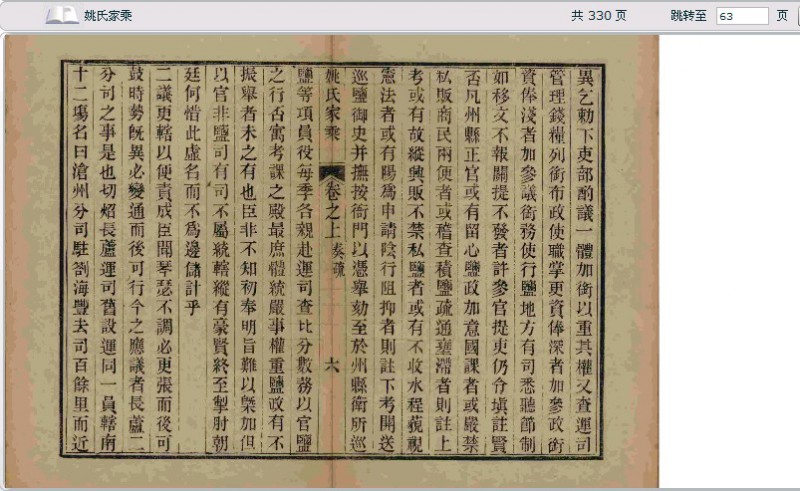 姚氏家乘
共 330 页
跳转至 63 页
異乞勅下吏部酌議一體加銜以重其權又查運司
管理錢糧列銜布政使職掌更資俸深者加參政銜
資俸淺者加參議銜務使行鹽地方有司悉聽節制
如移文不報關提不發者許參官提吏仍令填註賢
否凡州縣正官或有留心鹽政加意國課者或嚴禁
私販商民兩便者或稽查積鹽疏通壅滯者則註上
考或有故縱興販不禁私鹽者或有不收水程藐視
憲法者或有陽爲申請陰行阻抑者則註下考開送
巡鹽御史并撫按衙門以憑舉劾至於州縣衛所巡
姚氏家乘
卷之上 奏疏
六
鹽等項員役每季各親赴運司查比分數務以官鹽
之行否寓考課之殿最庶體統嚴事權重鹽政有不
振舉者未之有也臣非不知初奉明旨難以槩加但
以官非鹽司有司不屬統轄縱有豪賢終至掣肘朝
廷何惜此虛名而不爲邊儲計乎
二議更轄以便責成臣聞琴瑟不調必更張而後可
鼓時勢旣異必變通而後可行今之應議者長蘆二
分司之事是也切炤長蘆運司舊設運同一員轄南
十二場名曰滄州分司駐劄海豐去司百餘里而近